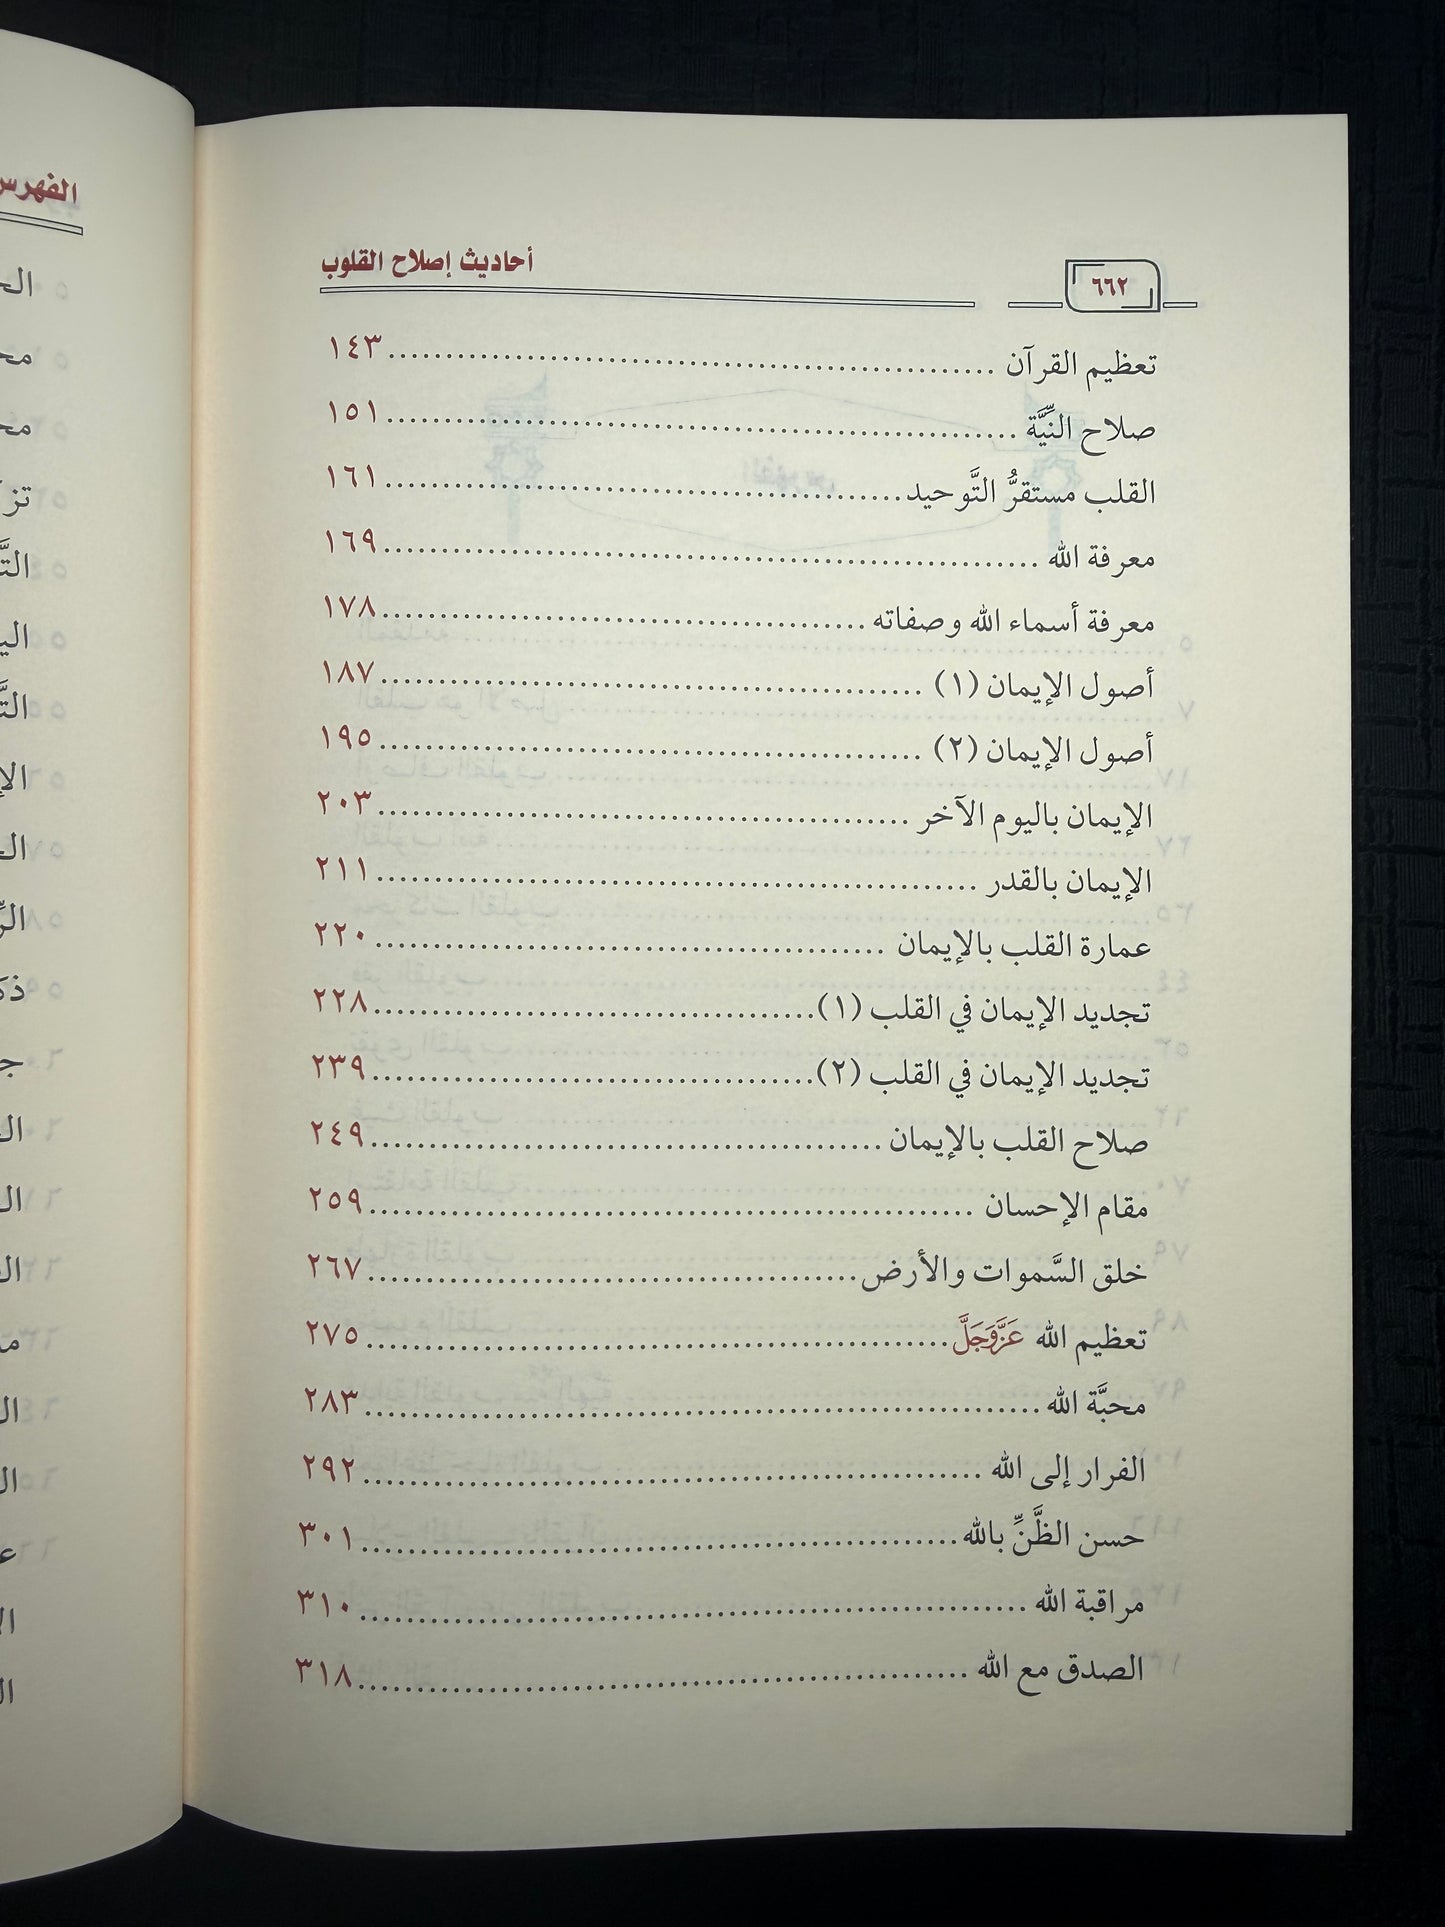 ٦٦٢
أحاديث إصلاح القلوب
تعظيم القرآن ١٤٣
صلاح النِّيَّة ١٥١
القلب مستقرُّ التَّوحيد ١٦١
معرفة الله ١٦٩
معرفة أسماء الله وصفاته ١٧٨
أصول الإيمان (١) ١٨٧
أصول الإيمان (٢) ١٩٥
الإيمان باليوم الآخر ٢٠٣
الإيمان بالقدر ٢١١
عمارة القلب بالإيمان ٢٢٠
تجديد الإيمان في القلب (١) ٢٢٨
تجديد الإيمان في القلب (٢) ٢٣٩
صلاح القلب بالإيمان ٢٤٩
مقام الإحسان ٢٥٩
خلق السَّموات والأرض ٢٦٧
تعظيم الله عَزَّوَجَلَّ ٢٧٥
محبَّة الله ٢٨٣
الفرار إلى الله ٢٩٢
حسن الظَّنِّ بالله ٣٠١
مراقبة الله ٣١٠
الصدق مع الله ٣١٨
الفهرس